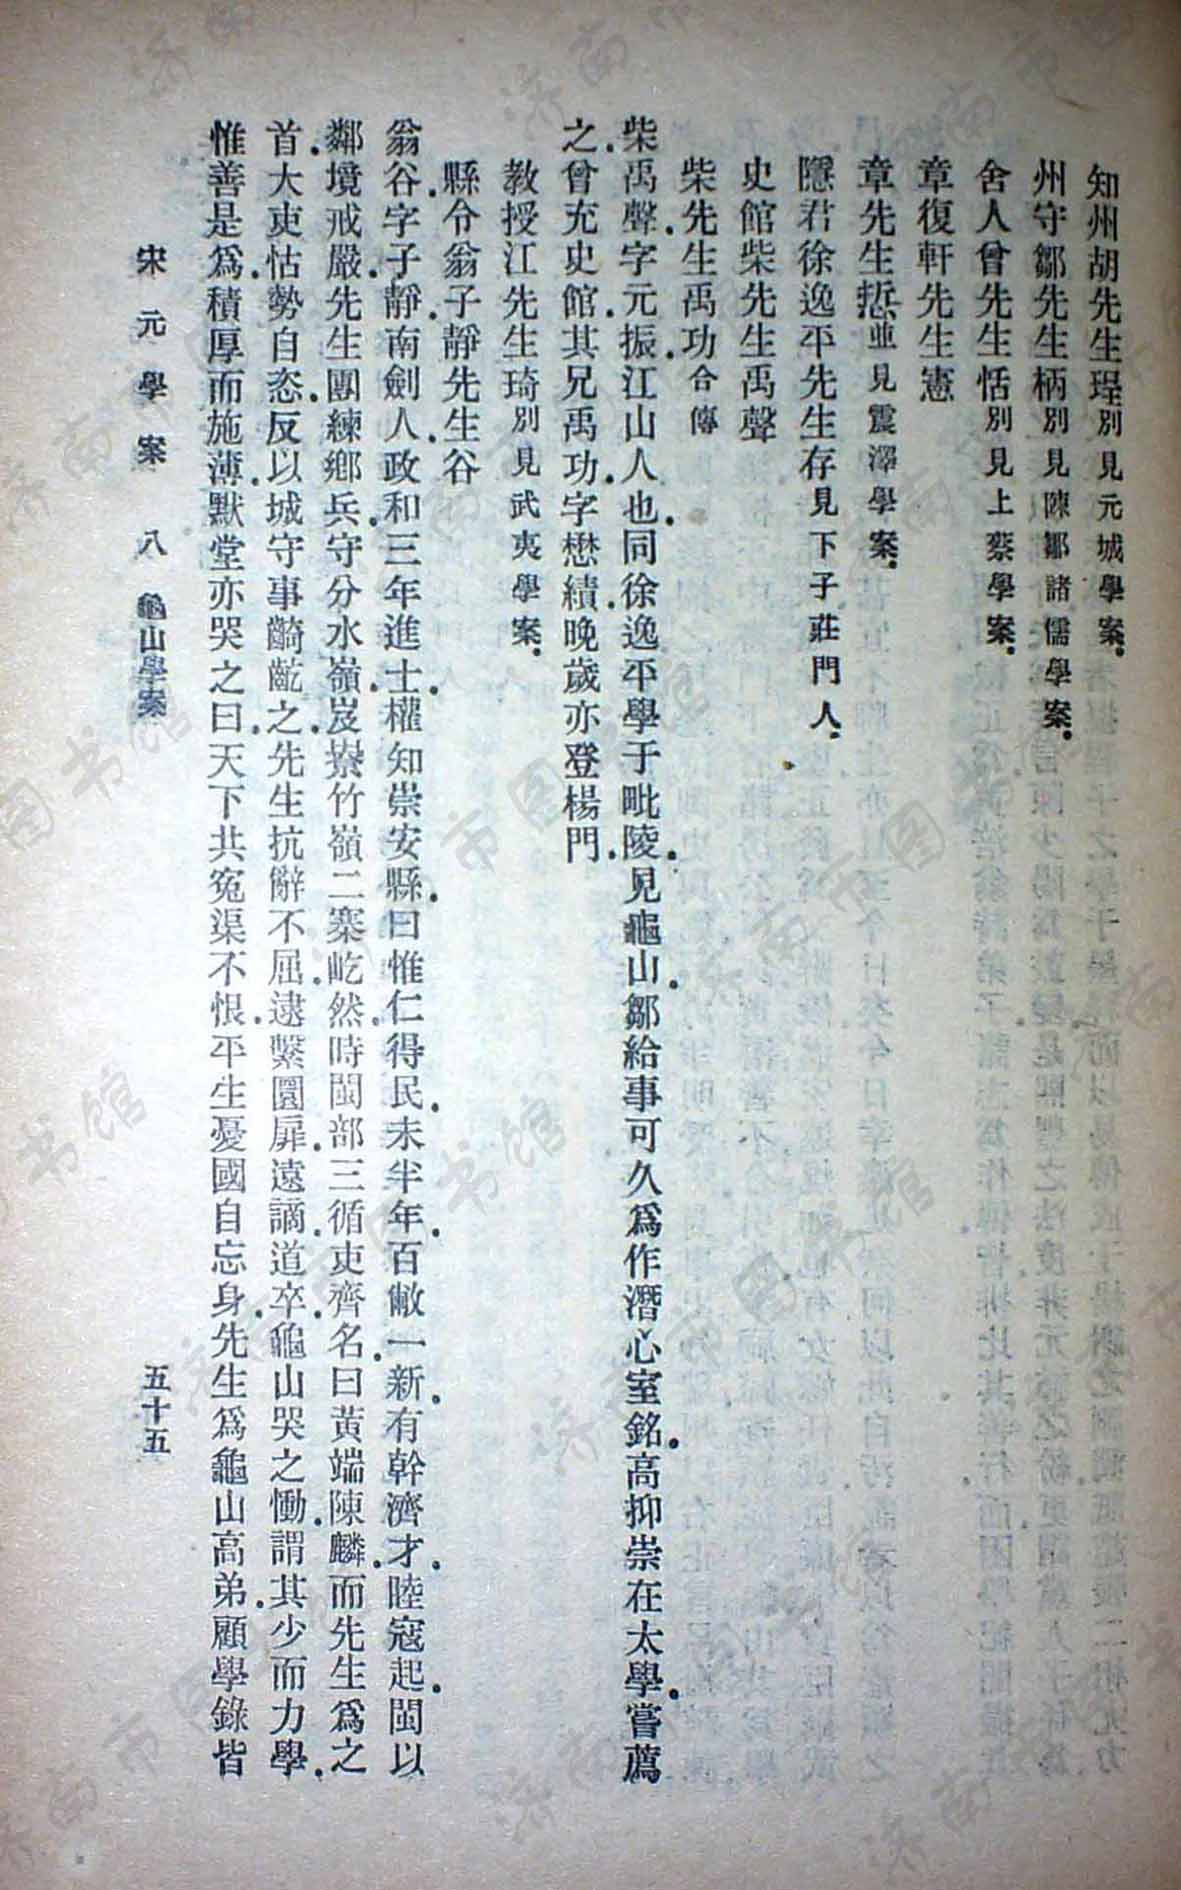 知州胡先生珵別見元城學案．
州守鄒先生柄別見陳鄒諸儒學案．
舍人曾先生恬別見上蔡學案．
章復軒先生憲
章先生悊並見震澤學案．
隱君徐逸平先生存見下子莊門人．
史館柴先生禹聲
柴先生禹功合傳
柴禹聲．字元振．江山人也．同徐逸平學于毗陵．見龜山．鄒給事可久爲作潛心室銘．高抑崇在太學．嘗薦
之．曾充史館．其兄禹功．字懋績．晚歲亦登楊門．
教授江先生琦別見武夷學案．
縣令翁子靜先生谷
翁谷．字子靜．南劍人．政和三年進士．權知崇安縣．曰惟仁得民．未半年．百敝一新．有幹濟才．睦寇起．閩以
鄰境戒嚴．先生團練鄉兵．守分水嶺．岌寮竹嶺二寨屹然．時閩部三循吏齊名．曰黃端陳麟．而先生爲之
首．大吏怙勢自恣．反以城守事齮齕之．先生抗辭不屈．逮繫圜扉．遠謫．道卒．龜山哭之慟．謂其少而力學．
惟善是爲．積厚而施薄．默堂亦哭之曰．天下共冤渠不恨．平生憂國自忘身．先生爲龜山高弟．顧學錄皆
宋元學案　八　龜山學案　五十五
济南市图书馆